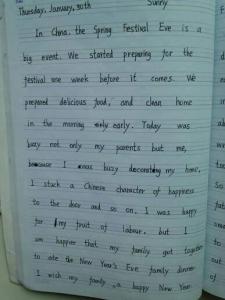 Thursday, January, 30th Sunny
In China, the Spring Festival Eve is a
big event. We started preparing for the
festival one week before it comes. We
prepared delicious food, and clean home
in the morning early. Today was
busy not only my parents but me,
because I was busy decorating my home.
I stuck a Chinese character of happiness
to the door and so on. I was happy
for my fruit of labour, but I
am happier that my family got together
to ate the New Year's Eve family dinner
I wish my family a happy New Year.